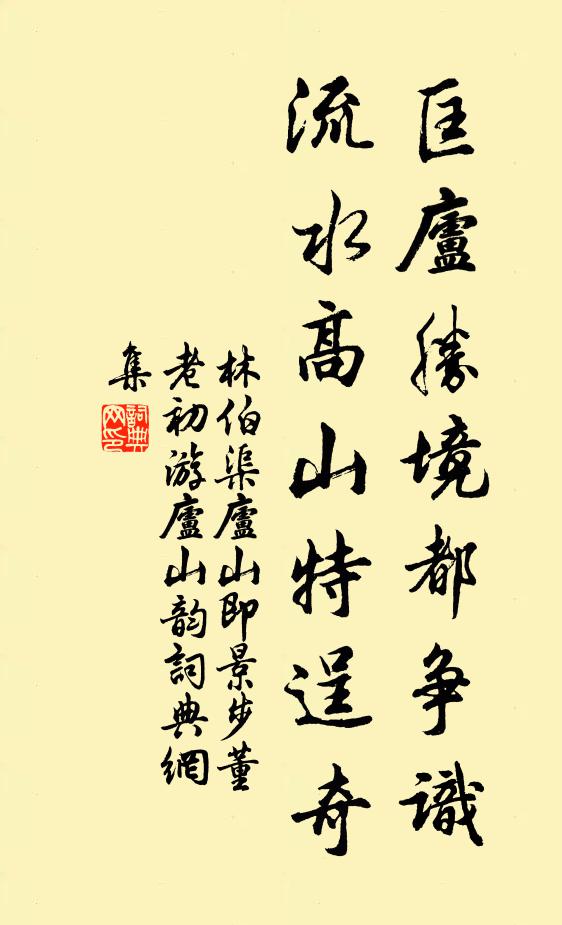 匡廬勝境都争識
流水高山特逞奇
林伯渠廬山即景步董
老初游廬山韵詞典網
集
詞典网印